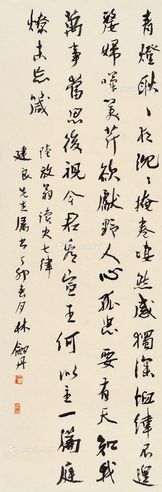 青燈耿々夜沈々掩卷凄然感獨深恤緯不遑
嫠婦嘆美芹欲獻野人心孤忠要有天知我
萬事當思後視今君看宣王何以主一篇庭
燎未忘箴
陸放翁讀史七律
建良先生屬書丁卯春月林劍丹